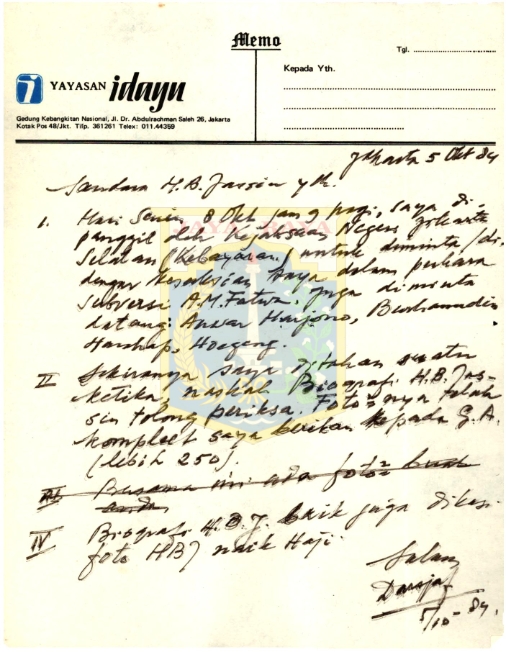 Memo
YAYASAN idayu
Gedung Kebangkitan Nasional, Jl. Dr. Abdulrachman Saleh 26, Jakarta
Kotak Pos 48/Jkt. Tilp. 361261 Telex: 011.44359
Tgl. ..........................
Kepada Yth.
Jakarta 5 Okt 84
Saudara H.B. Jassin yth.
I. Hari Senin, 8 Okt jam 9 pagi, saya di-
panggil oleh Kejaksaan Negeri Jakarta
Selatan (Kebayoran) untuk diminta /di-
dengar kesaksian saya dalam perkara
subversi A.M. Fatwa. Juga diminta
datang: Anwar Harjono, Burhanuddin
Harahap, Hoegeng.
II Sekiranya saya ditahan suatu
ketika, naskah Biografi H.B. Jas-
sin tolong periksa. Foto2nya telah
kompleet saya berikan kepada G.A.
(lebih 250).
III Bersama ini ada foto2 buat
anda
IV Biografi H.B.J. baik juga dikasi
foto HBJ naik Haji.
Salam
5/10-84.
JAYA RAYA